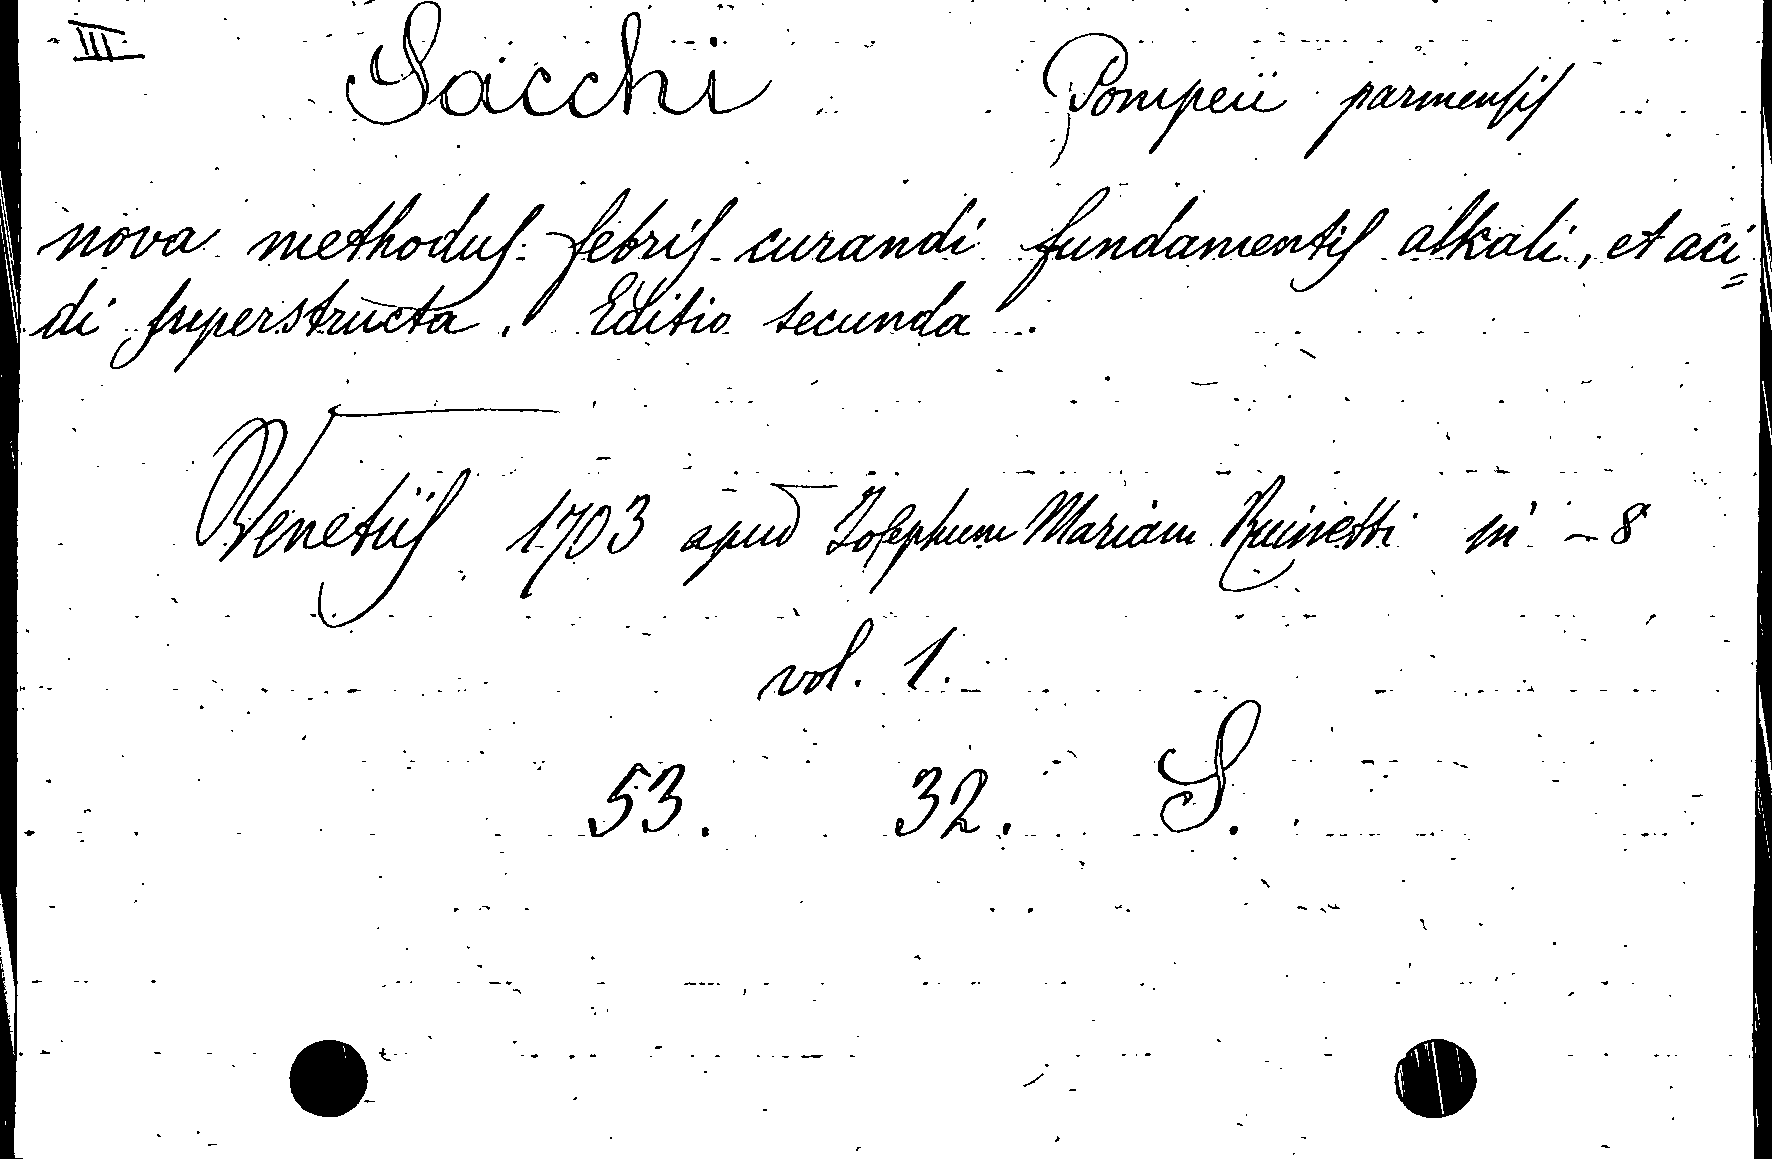 III
Sacchi Pompeii parmensis
nova methodus febris curandi fundamentis alkali, et aci=
di superstructa. Editio secunda.
Venetiis 1703 apud Josephum Mariam Ruinetti in -8
vol. 1.
53. 32. S.